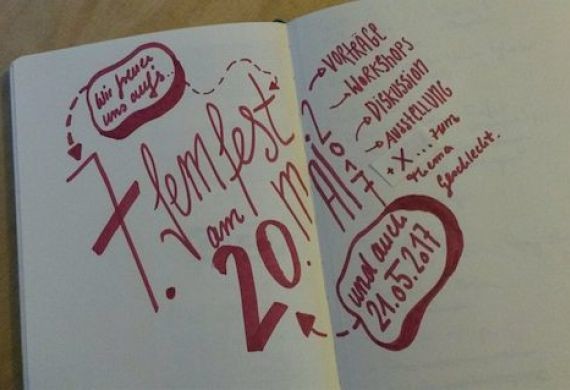 Wir freuen
uns aufs...
7. femfest
am
20. MAI 2017
→ VORTRÄGE
→ WORKSHOPS
→ DISKUSSION
→ AUSSTELLUNG
+ X ... zum
Thema
Geschlecht.
und auch
21.05.2017